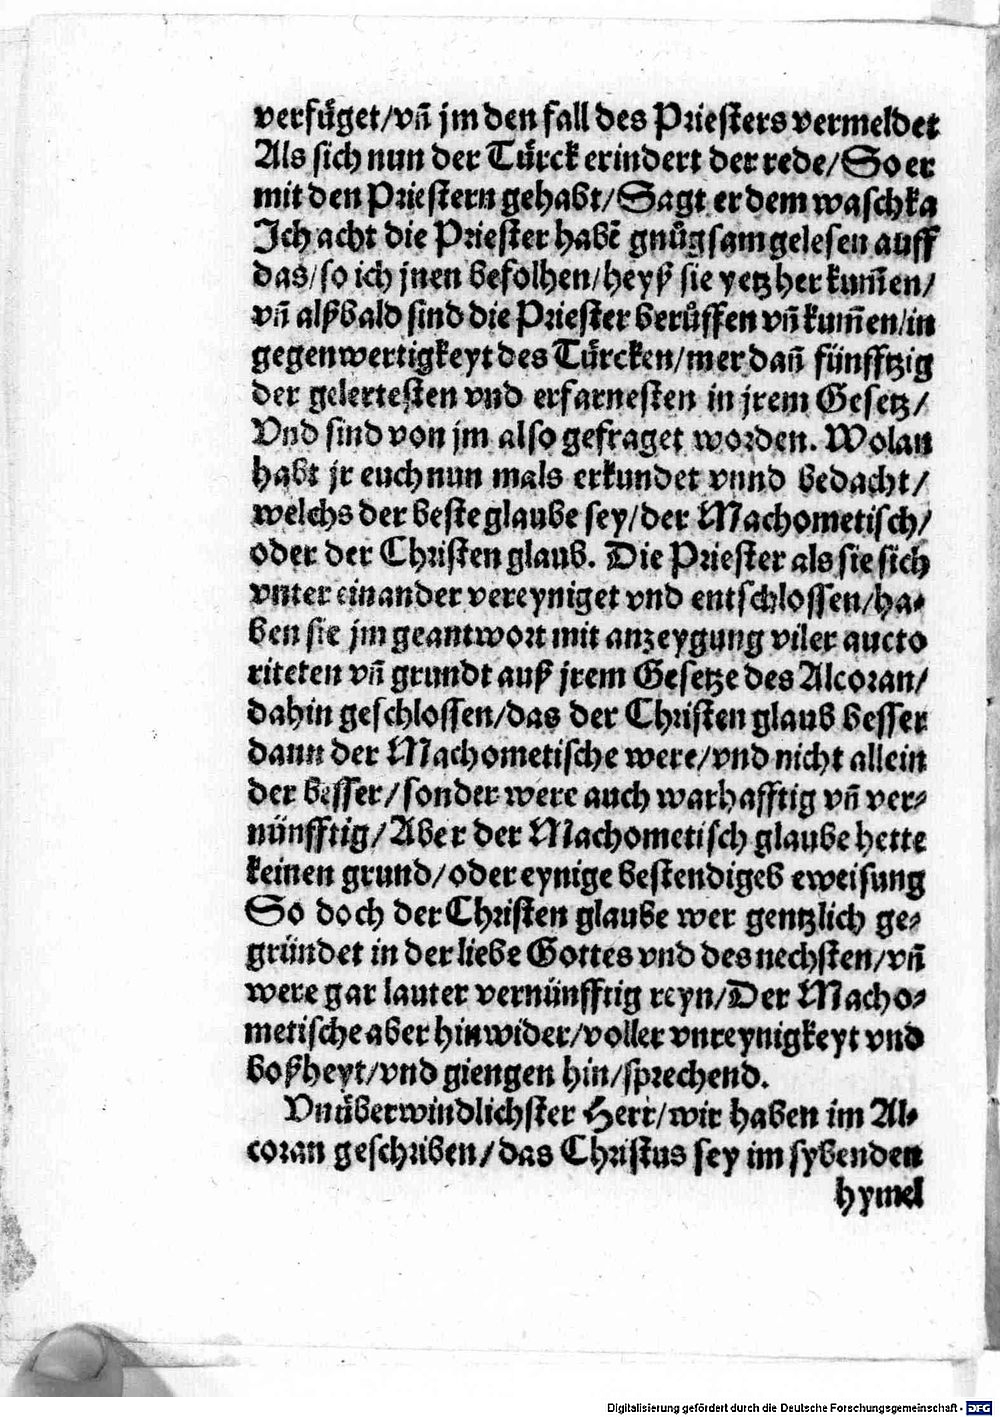 verfüget/vñ jm den fall des Priesters vermeldet
Als sich nun der Türck erindert der rede/So er
mit den Priestern gehabt/Sagt er dem waschka
Ich acht die Priester habē gnůgsam gelesen auff
das/so ich jnen befolhen/heyß sie yetz her kum̄en/
vñ alßbald sind die Priester berůffen vñ kum̄en/in
gegenwertigkeyt des Türcken/mer dañ fünfftzig
der gelertesten vnd erfarnesten in jrem Gesetz/
Vnd sind von jm also gefraget worden. Wolan
habt jr euch nun mals erkundet vnnd bedacht/
welchs der beste glaube sey/der Machometisch/
oder der Christen glaub. Die Priester als sie sich
vnter einander vereyniget vnd entschlossen/ha⸗
ben sie jm geantwort mit anzeygung viler aucto
riteten vñ grundt auß jrem Gesetze des Alcoran/
dahin geschlossen/das der Christen glaub besser
dann der Machometische were/vnd nicht allein
der besser/sonder were auch warhafftig vñ ver⸗
nünfftig/Aber der Machometisch glaube hette
keinen grund/oder eynige bestendigeb eweisung
So doch der Christen glaube wer gentzlich ge⸗
gründet in der liebe Gottes vnd des nechsten/vñ
were gar lauter vernünfftig reyn/Der Macho⸗
metische aber hinwider/voller vnreynigkeyt vnd
boßheyt/vnd giengen hin/sprechend.
Vnüberwindlichster Herr/wir haben im Al⸗
coran geschriben/das Christus sey im sybenden
hymel
Digitalisierung gefördert durch die Deutsche Forschungsgemeinschaft - DFG